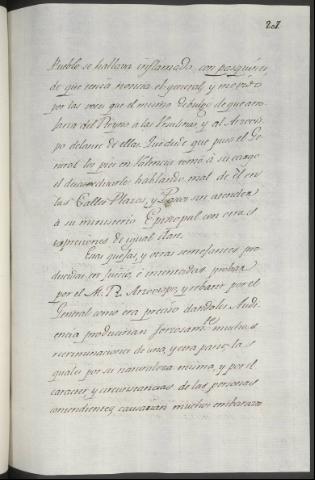 207
Pueblo se hallava inflamado, con pasquines,
de que tenia noticia el general, y movido
por las voces que el mismo divulgo de que
 del Reyno a las y al Arzovis
po delante de ellas. Que desde que puso el Ge
neral los pies en Valencia tomó à su cargo
el desacreditarle hablando mal de él en
las Calles Plazas, y sin atender
à su ministerio Episcopal con otras
expresiones de igual clase.
Estas quejas, y otras semejantes pro
ducidas en Juicio, è intentadas probar
por el M. R. Arzobispo, y rebatir por el
General como era preciso dandoles Audi
encia producirian forzosam.te muchas
recriminaciones de una, y otra parte, las
quales por su naturaleza misma, y por el
caracter y circunstancias de las personas
contendientes, causarian muchos embarazos